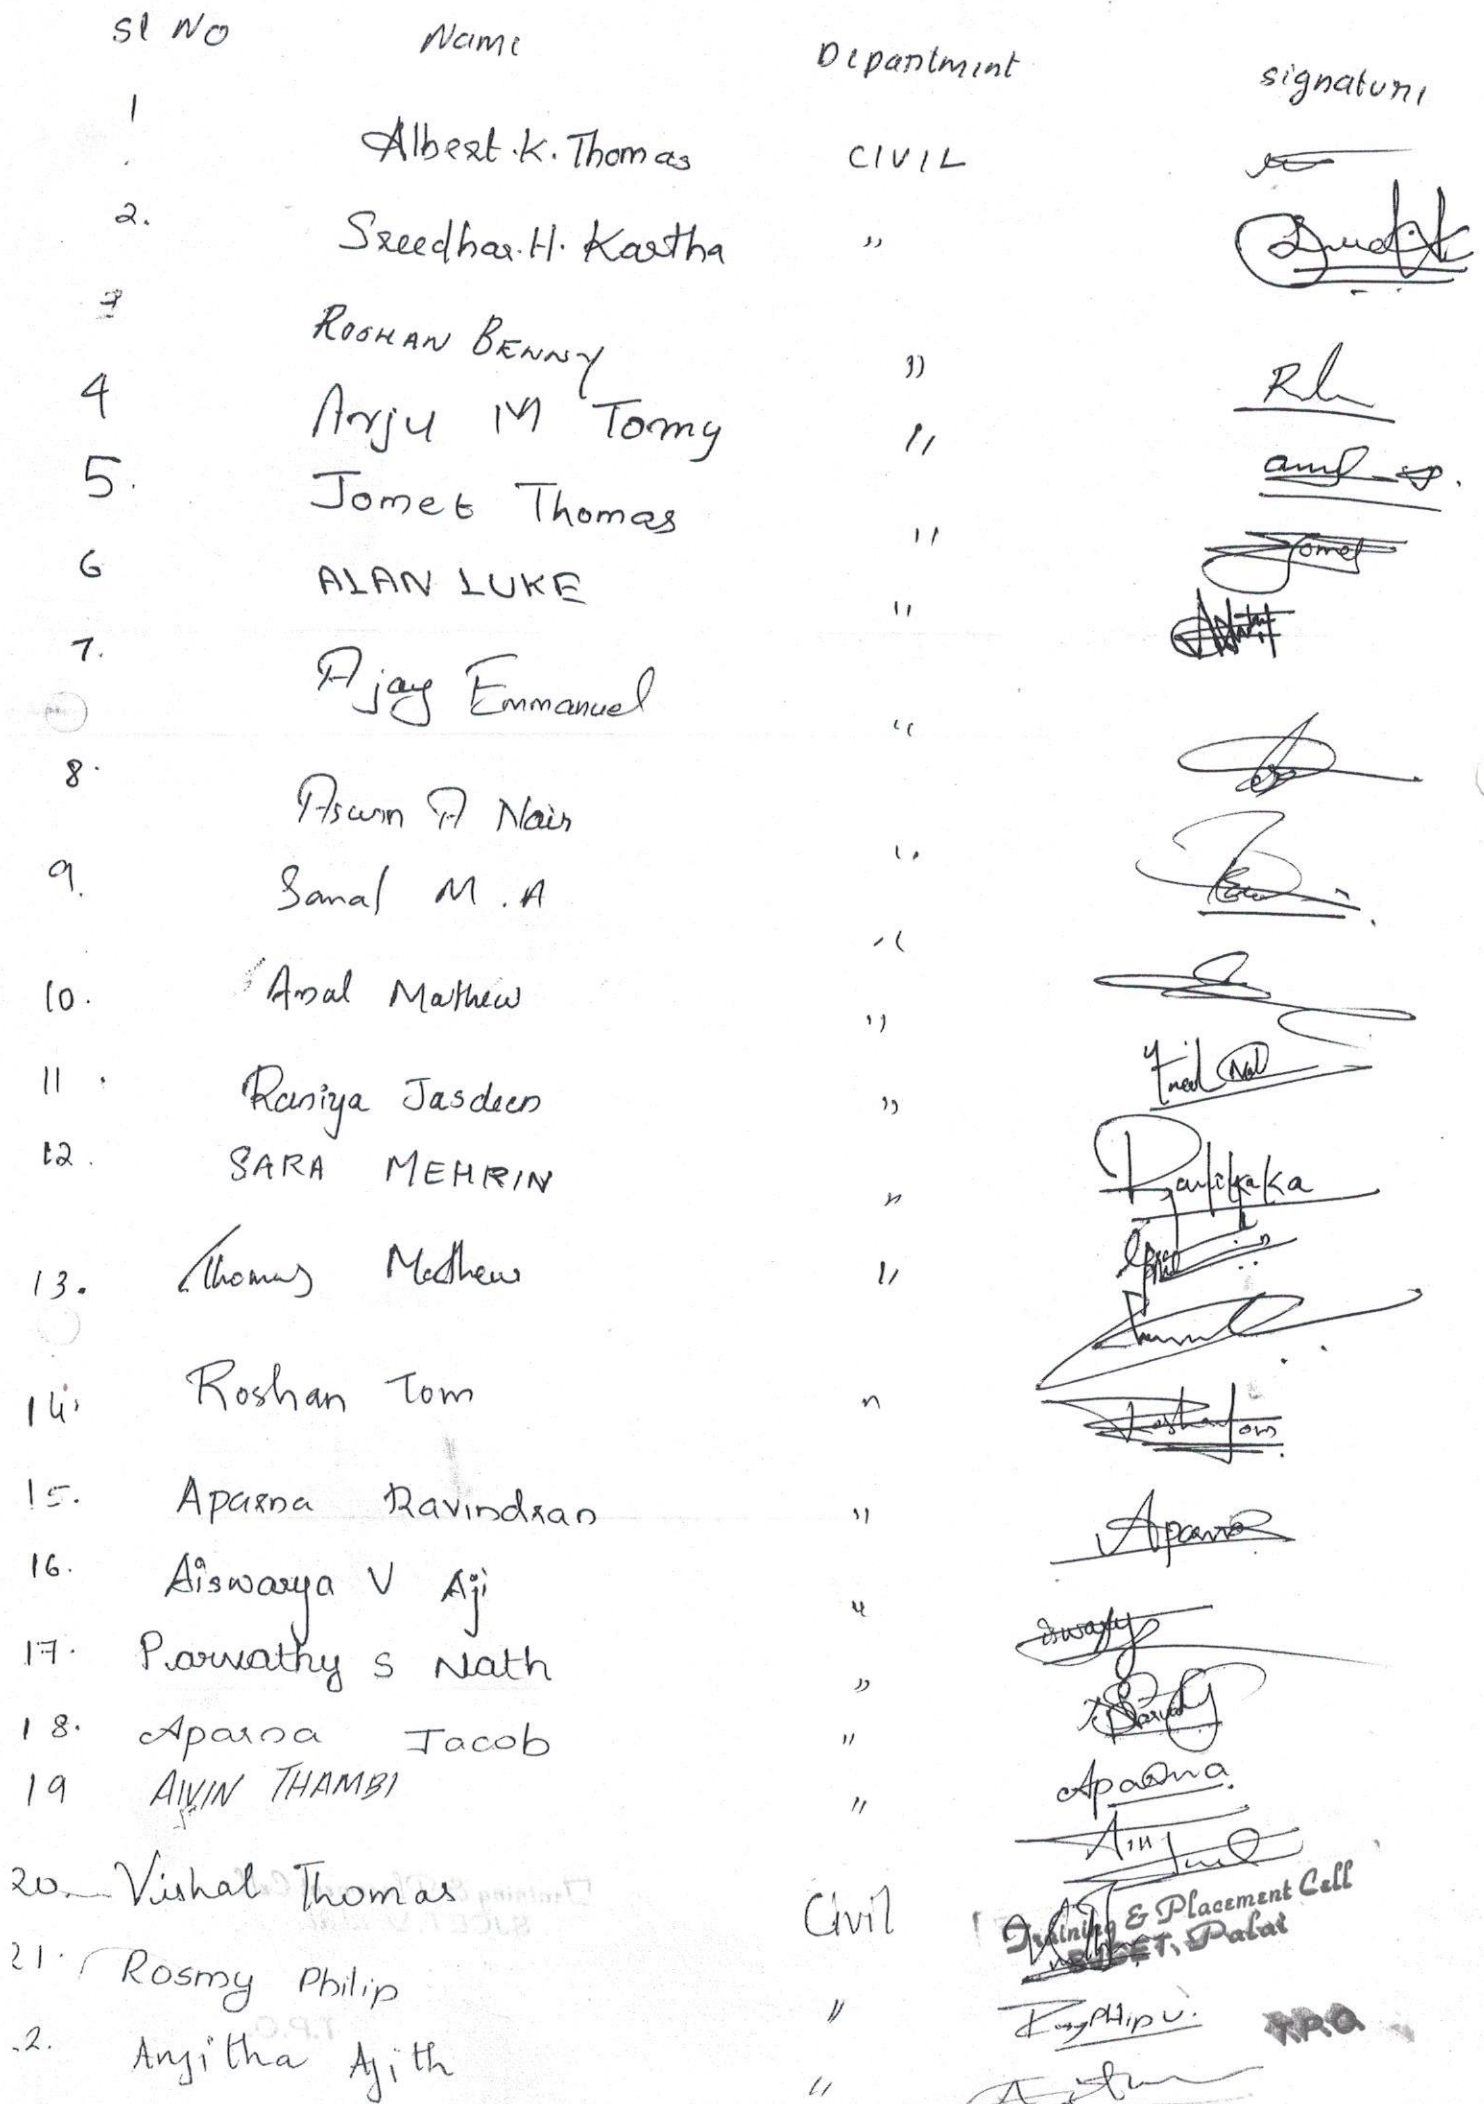 Sl No Name Department signature
1 Albert.K.Thomas CIVIL
2. Sreedhar.H.Kartha "
3 ROSHAN BENNY "
4 Anju M Tomy "
5. Jomet Thomas " Jomet
6 ALAN LUKE "
7. Ajay Emmanuel "
8. Aswin A Nair "
9. Sanal M.A "
10. Amal Mathew "
11. Raniya Jasdeen "
12. SARA MEHRIN "
13. Thomas Mathew "
14. Roshan Tom " Roshan Tom
15. Aparna Ravindran " Aparna
16. Aiswarya V Aji "
17. Parvathy S Nath "
18. Aparna Jacob " Aparna
19 ALVIN THAMBI "
20. Vishal Thomas Civil
Training & Placement Cell
SJCET, Palai
21. Rosmy Philip "
T.P.O
2. Anjitha Ajith "